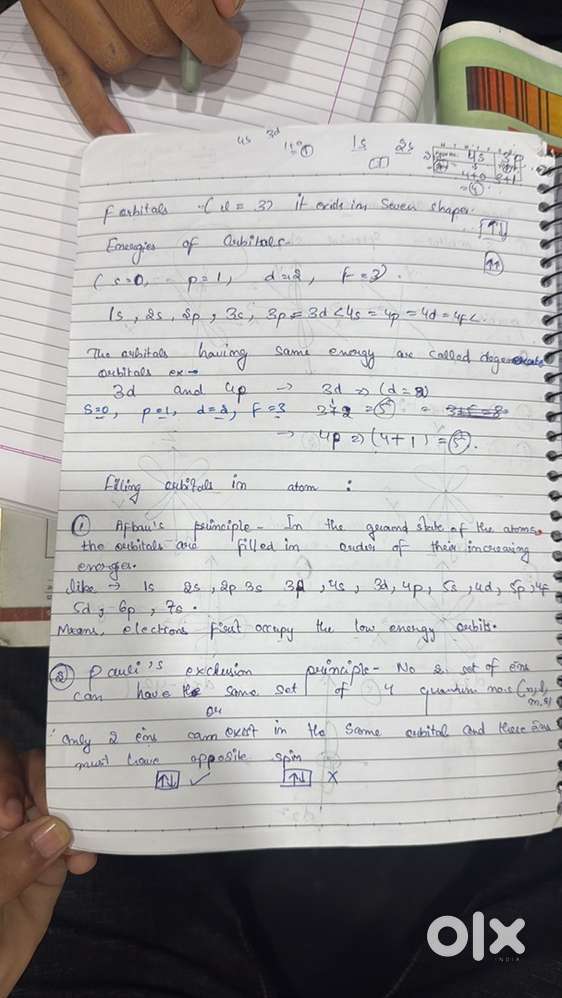 4s 3d
1s 2s
4s 3p
4+0 3+1
=4
f orbitals -(l = 3) it exists in seven shapes.
Energies of Orbitals-
(s=0, p=1, d=2, f=3).
1s, 2s, 2p, 3s, 3p = 3d < 4s = 4p = 4d = 4f <.
The orbitals having same energy are called degenerate
orbitals ex→
3d and 4p → 3d ⇒ (d = 2)
s=0, p=1, d=2, f=3 3+2 = 5 = 3+5=8
→ 4p ⇒ (4+1) = 5.
Filling orbitals in atom :
① Afbau's principle - In the ground state of the atoms,
the orbitals are filled in order of their increasing
energies.
like → 1s 2s, 2p 3s 3p, 4s, 3d, 4p, 5s, 4d, 5p, 4f
5d, 6p, 7s.
Means, electrons first occupy the low energy orbits.
② Pauli's exclusion principle - No 2 set of e⁻ns
can have the same set of 4 quantum no.s (n,l,
m,s)
or
only 2 e⁻ns can exist in the same orbital and these e⁻ns
must have opposite spin
↑↓ ✓ ↑↓ X
olx
INDIA